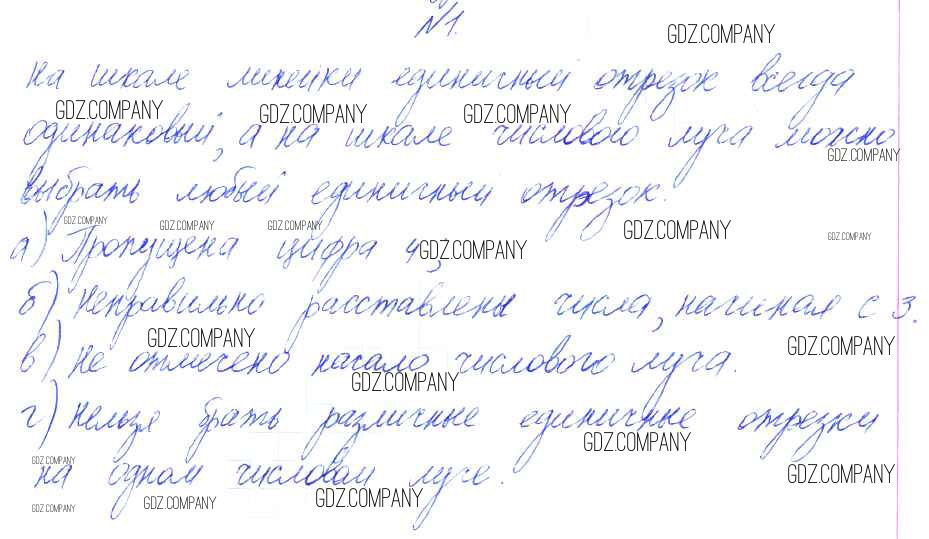 №1.
GDZ.COMPANY
На шкале линейки единичный отрезок всегда
GDZ.COMPANY GDZ.COMPANY GDZ.COMPANY
одинаковый, а на шкале числового луча можно
GDZ.COMPANY
выбрать любый единичный отрезок.
GDZ.COMPANY GDZ.COMPANY GDZ.COMPANY GDZ.COMPANY GDZ.COMPANY
а) Пропущена цифра 4;
GDZ.COMPANY
б) Неправильно расставлены числа, начиная с 3.
GDZ.COMPANY GDZ.COMPANY
в) Не отмечено начало числового луча.
GDZ.COMPANY
г) Нельзя брать различные единичные отрезки
GDZ.COMPANY
GDZ.COMPANY GDZ.COMPANY
на одном числовом луче.
GDZ.COMPANY GDZ.COMPANY GDZ.COMPANY